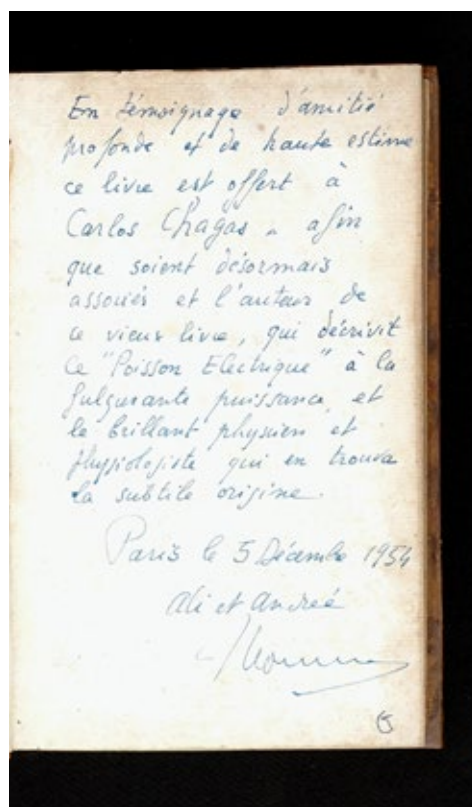 En témoignage d'amitié
profonde et de haute estime
ce livre est offert à
Carlos Chagas - afin
que soient désormais
associés et l'auteur de
ce vieux livre, qui décrivit
ce "Poisson Electrique" à la
fulgurante puissance, et
le brillant physicien et
physiologiste qui en trouva
la subtile origine.
Paris le 5 Décembre 1954
Ali et Andrée